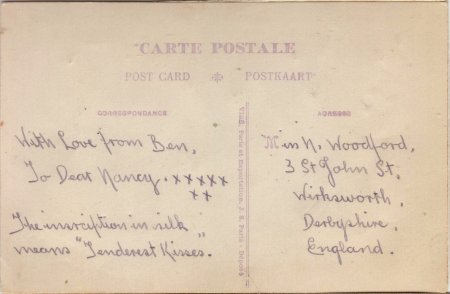 CARTE POSTALE
POST CARD
POSTKAART
CORRESPONDANCE
ADRESSE
With Love from Ben,
To Dear Nancy. xxxxx
xx
"The inscription in silk"
means "Tenderest Kisses."
Visé, Paris et Exportation, J. S. Paris Déposé
Miss N. Woodford,
3 St John St,
Wirksworth,
Derbyshire,
England.